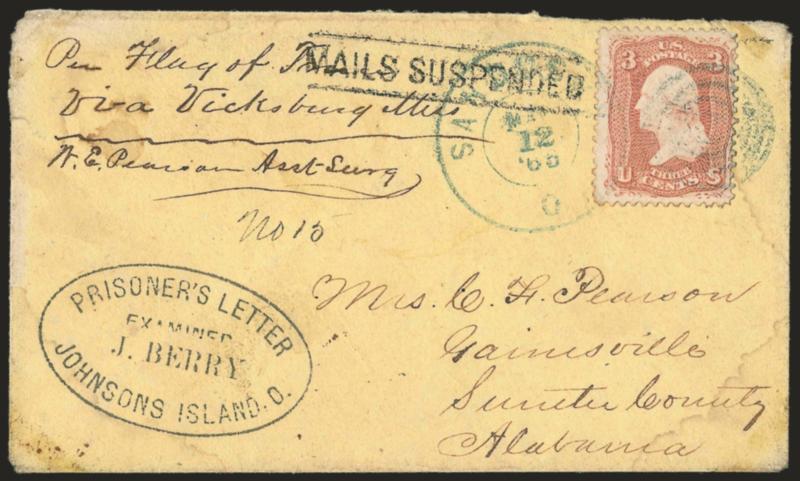 Per Flag of Tru
Via Vicksburg Miss
W. E. Pearson Asst Surg
No 15
MAILS SUSPENDED
SAN
MA
12
'65
O
U.S. POSTAGE
3 3
U S
THREE CENTS
PRISONER'S LETTER
EXAMINED
J. BERRY
JOHNSONS ISLAND. O.
Mrs. C. H. Pearson
Gainesville
Sumter County
Alabama